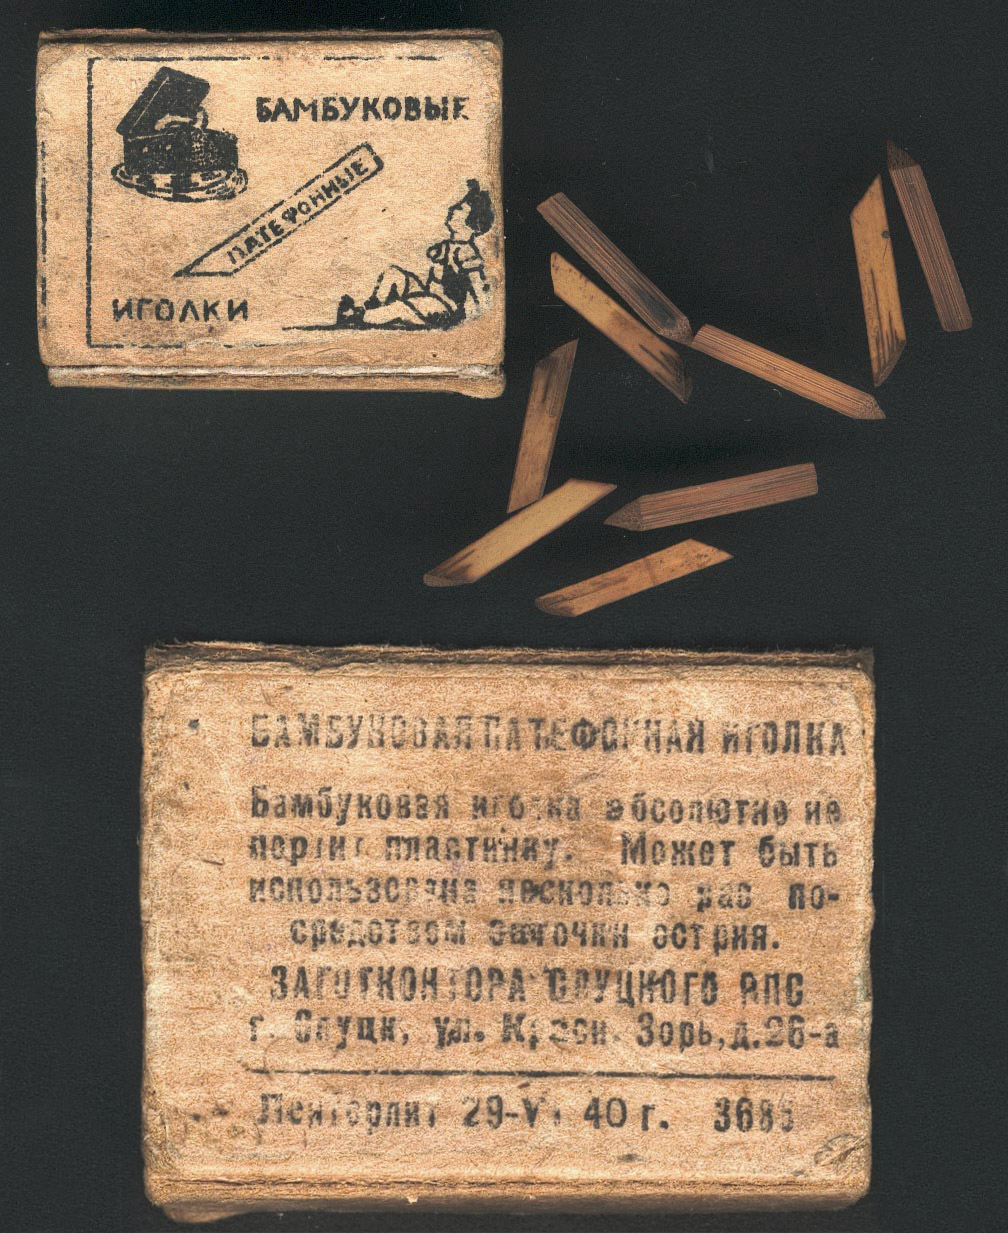 БАМБУКОВЫЕ
ПАТЕФОННЫЕ
ИГОЛКИ
БАМБУКОВАЯ ПАТЕФОННАЯ ИГОЛКА
Бамбуковая иголка абсолютно не
портит пластинку. Может быть
использована несколько раз по-
средством заточки острия.
ЗАГОТКОНТОРА СЛУЦКОГО РПС
г. Слуцк, ул. Красн. Зорь, д. 26-а
Ленгорлит 29-VI 40 г.